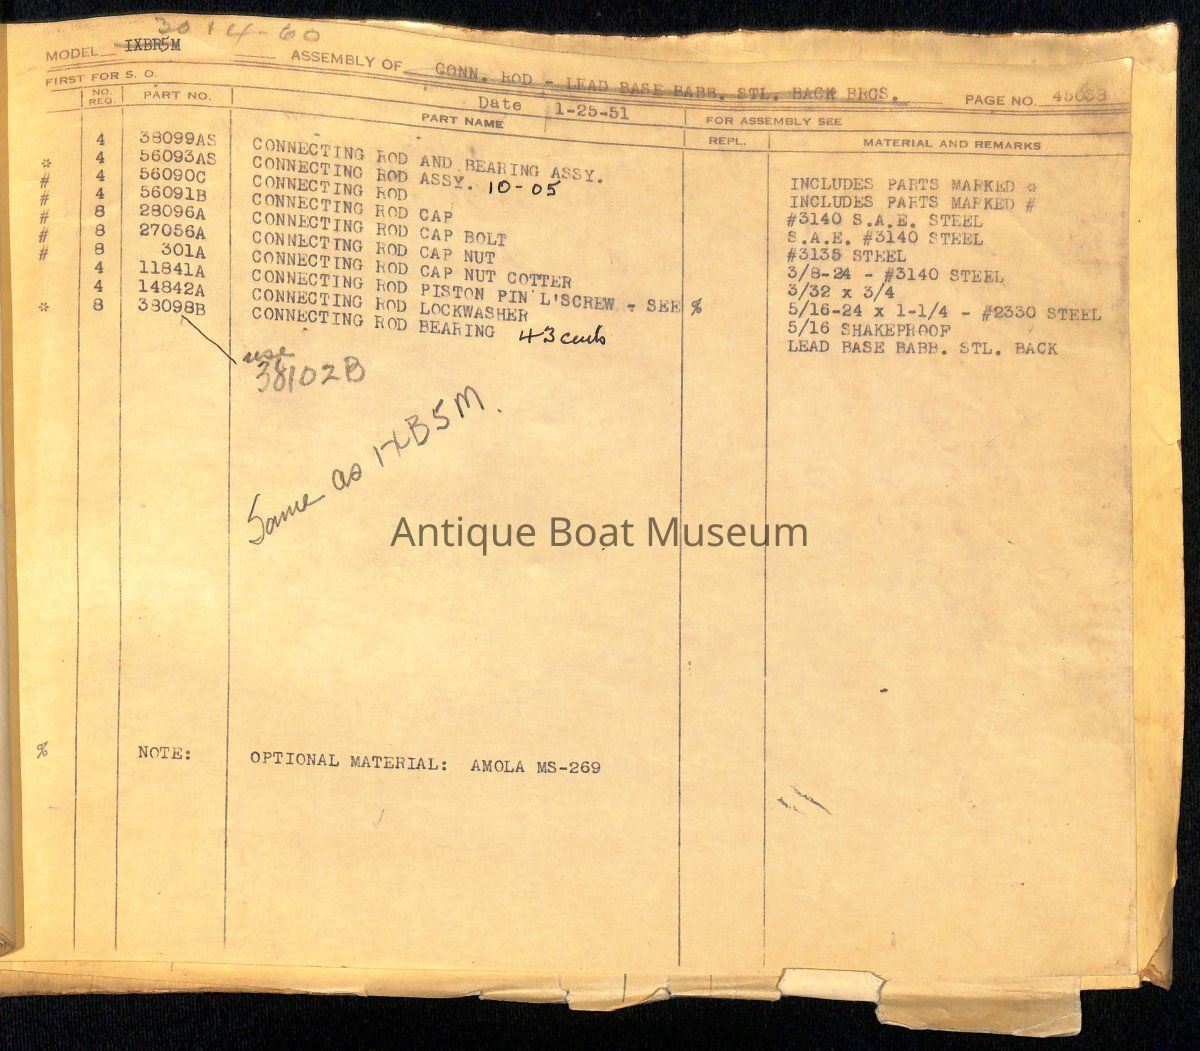 3014-60
MODEL IXBR5M ASSEMBLY OF CONN. ROD - LEAD BASE BABB. STL. BACK BRGS. PAGE NO.
FIRST FOR S. O.
Date 1-25-51
NO. REQ. PART NO. PART NAME FOR ASSEMBLY SEE
REPL. MATERIAL AND REMARKS
4 38099AS CONNECTING ROD AND BEARING ASSY. INCLUDES PARTS MARKED *
* 4 56093AS CONNECTING ROD ASSY. 10-05 INCLUDES PARTS MARKED #
# 4 56090C CONNECTING ROD #3140 S.A.E. STEEL
# 4 56091B CONNECTING ROD CAP S.A.E. #3140 STEEL
# 8 28096A CONNECTING ROD CAP BOLT #3135 STEEL
# 8 27056A CONNECTING ROD CAP NUT 3/8-24 - #3140 STEEL
# 8 301A CONNECTING ROD CAP NUT COTTER 3/32 x 3/4
4 11841A CONNECTING ROD PISTON PIN L'SCREW - SEE % 5/16-24 x 1-1/4 - #2330 STEEL
4 14842A CONNECTING ROD LOCKWASHER 5/16 SHAKEPROOF
* 8 38098B CONNECTING ROD BEARING 43 cents LEAD BASE BABB. STL. BACK
use
38102B
Same as IXB5M.
Antique Boat Museum
% NOTE: OPTIONAL MATERIAL: AMOLA MS-269